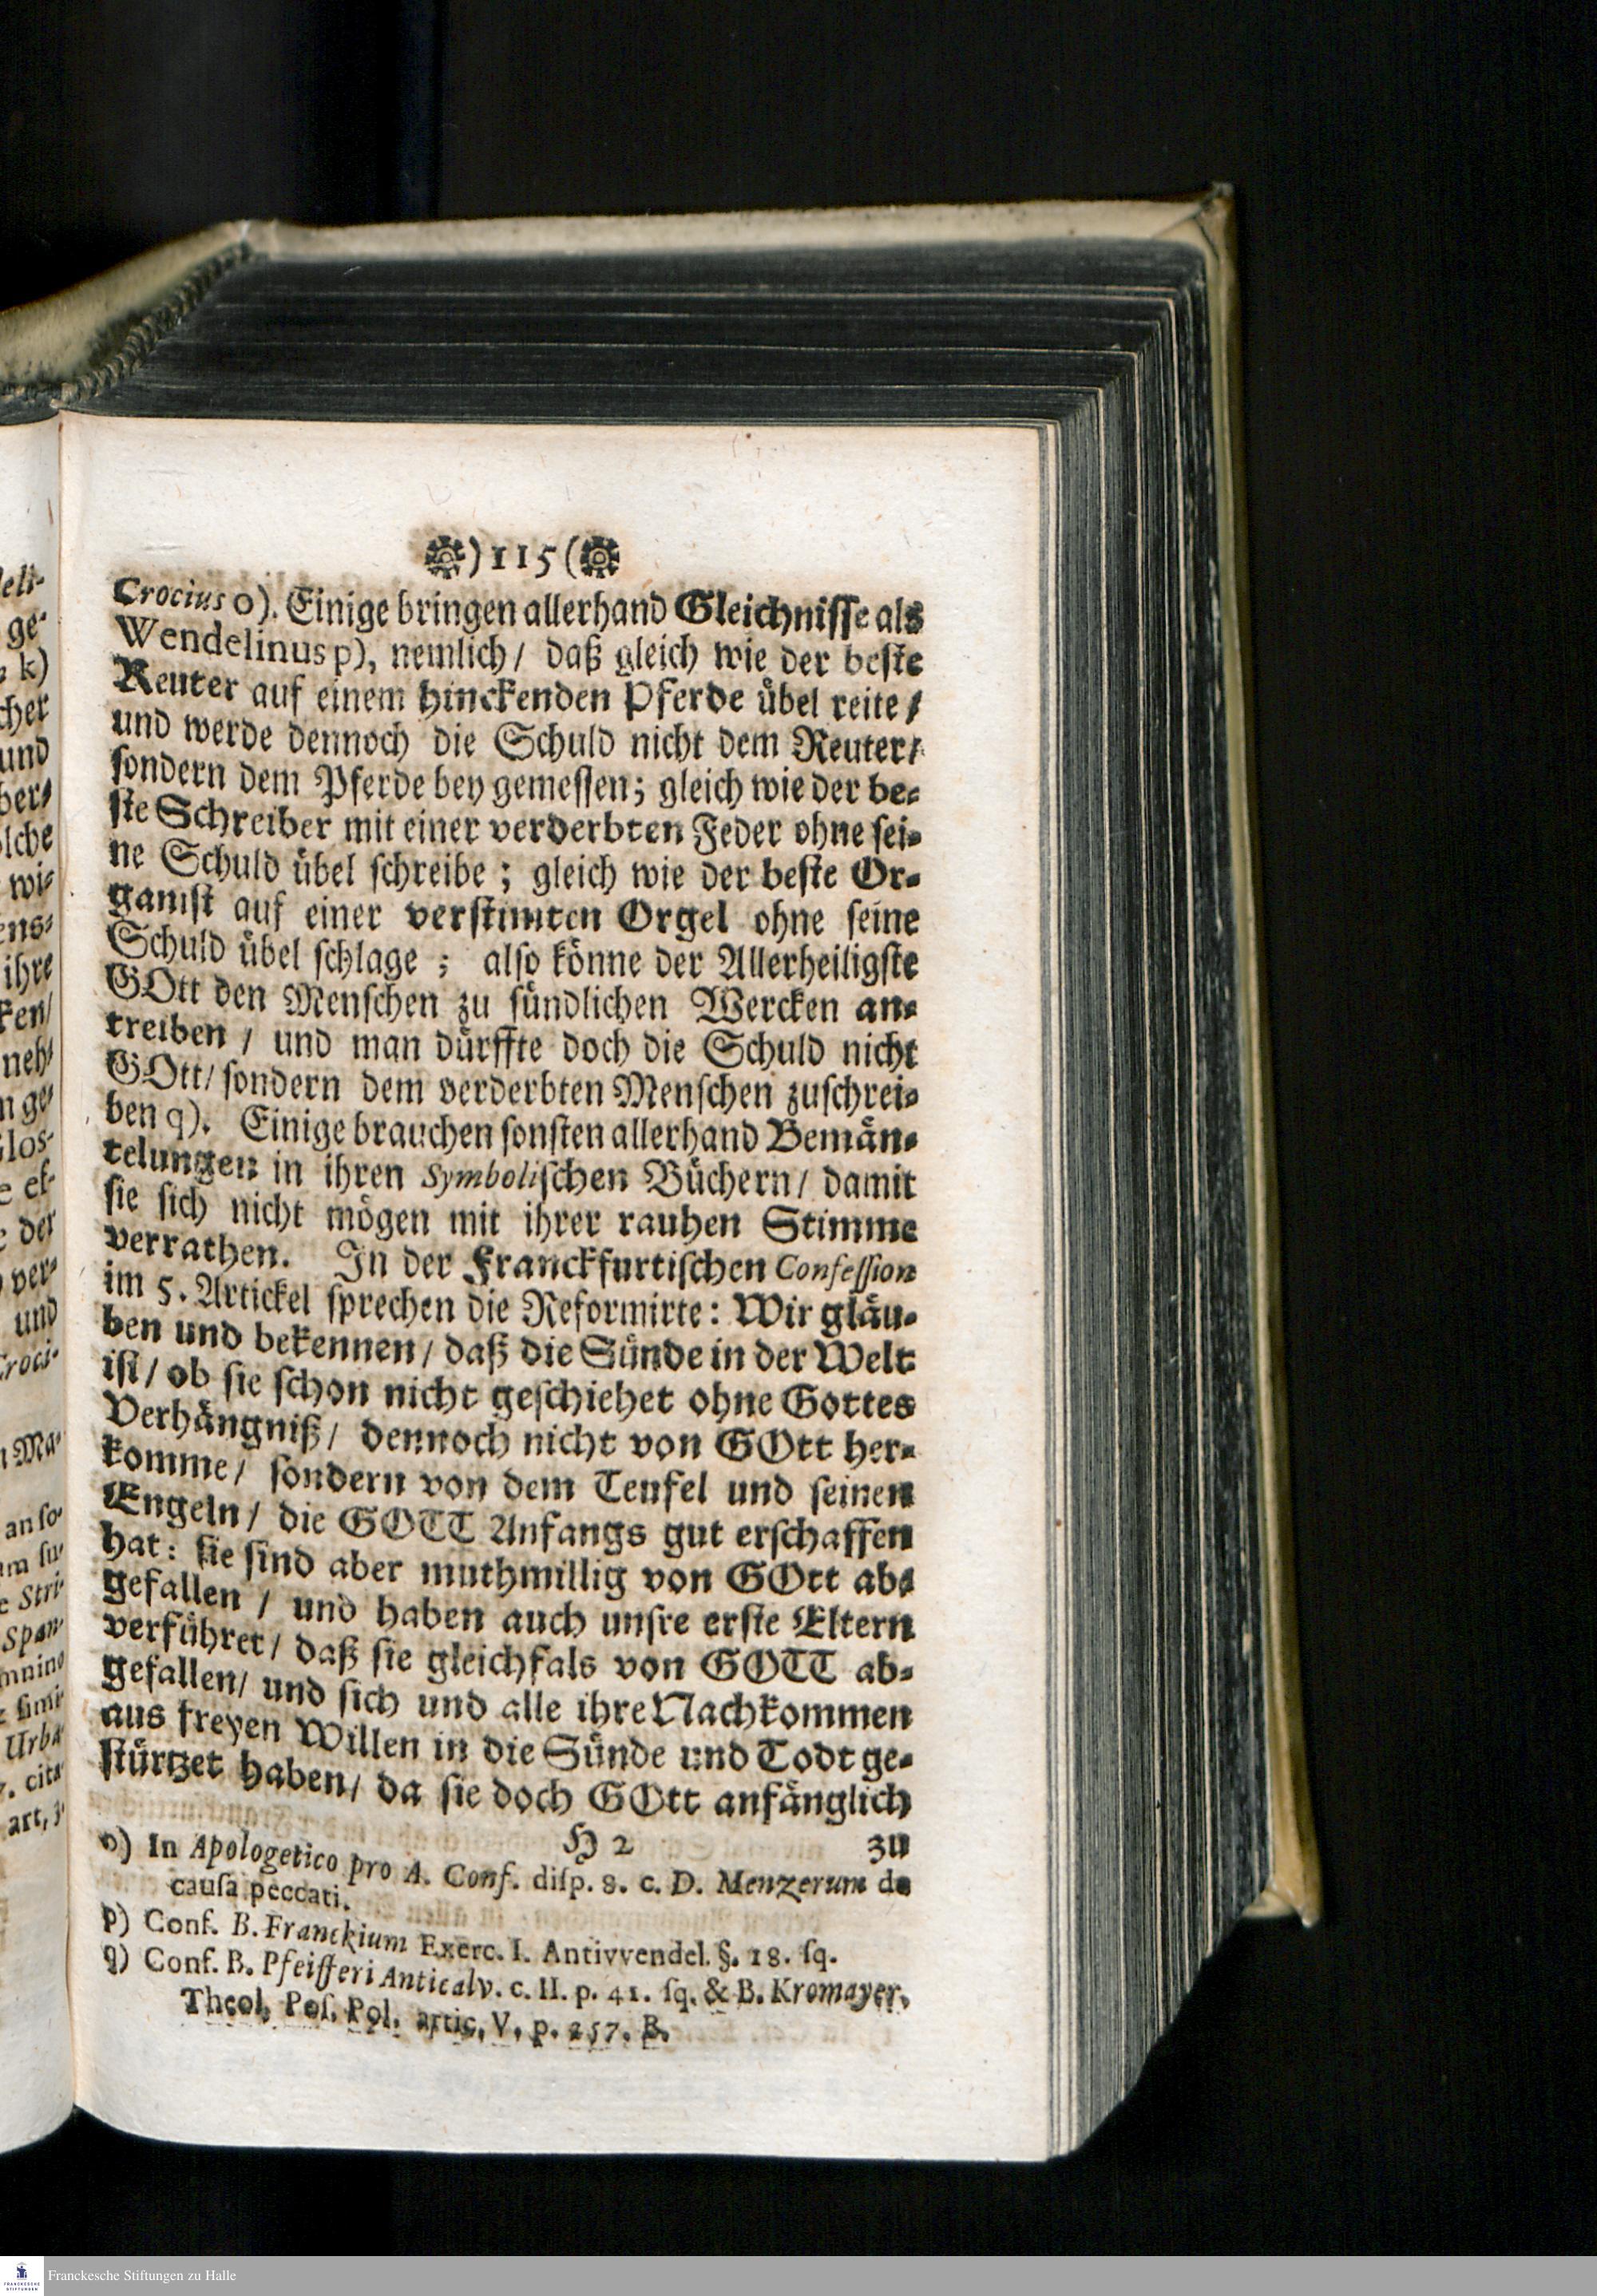 )115(
Crocius o). Einige bringen allerhand Gleichnisse als
Wendelinus p), nemlich/ daß gleich wie der beste
Reuter auf einem hinckenden Pferde übel reite/
und werde dennoch die Schuld nicht dem Reuter/
sondern dem Pferde bey gemessen; gleich wie der be-
ste Schreiber mit einer verderbten Feder ohne sei-
ne Schuld übel schreibe; gleich wie der beste Or-
ganist auf einer verstimten Orgel ohne seine
Schuld übel schlage; also könne der Allerheiligste
GOtt den Menschen zu sündlichen Wercken an-
treiben / und man dürffte doch die Schuld nicht
GOtt/ sondern dem verderbten Menschen zuschrei-
ben q). Einige brauchen sonsten allerhand Bemän-
telungen in ihren Symbolischen Büchern/ damit
sie sich nicht mögen mit ihrer rauhen Stimme
verrathen. In der Franckfurtischen Confession
im 5. Artickel sprechen die Reformirte: Wir gläu-
ben und bekennen/ daß die Sünde in der Welt
ist/ ob sie schon nicht geschiehet ohne Gottes
Verhängniß/ dennoch nicht von GOtt her-
komme/ sondern von dem Teufel und seinen
Engeln/ die GOTT Anfangs gut erschaffen
hat: sie sind aber muthmillig von GOtt ab-
gefallen / und haben auch unsre erste Eltern
verführet/ daß sie gleichfals von GOTT ab-
gefallen/ und sich und alle ihre Nachkommen
aus freyen Willen in die Sünde und Todt ge-
stürtzet haben/ da sie doch GOtt anfänglich
H 2 zu
o) In Apologetico pro A. Conf. disp. 8. c. D. Menzerum de
causa peccati.
p) Conf. B. Franckium Exerc. I. Antivvendel. §. 18. sq.
q) Conf. B. Pfeifferi Anticalv. c. II. p. 41. sq. & B. Kromayer.
Theol. Pos. Pol. artic. V. p. 257. B.
Franckesche Stiftungen zu Halle